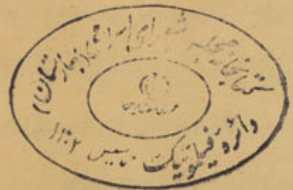 کتابخانه مجلس شورای اسلامی بهارستان
دائره
تاسیس ۱۳۰۲